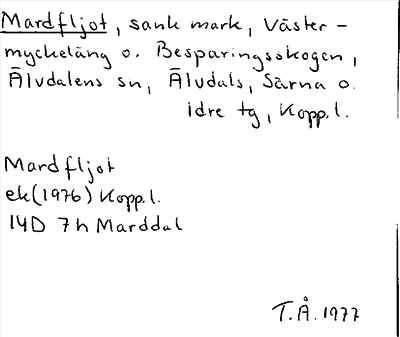 Mardfljot, sank mark, Väster-
myckeläng o. Besparingsskogen,
Älvdalens sn, Älvdals, Särna o.
idre tg, Kopp.l.
Mardfljot
ek(1976) Kopp.l.
14D 7h Marddal
T.Å. 1977